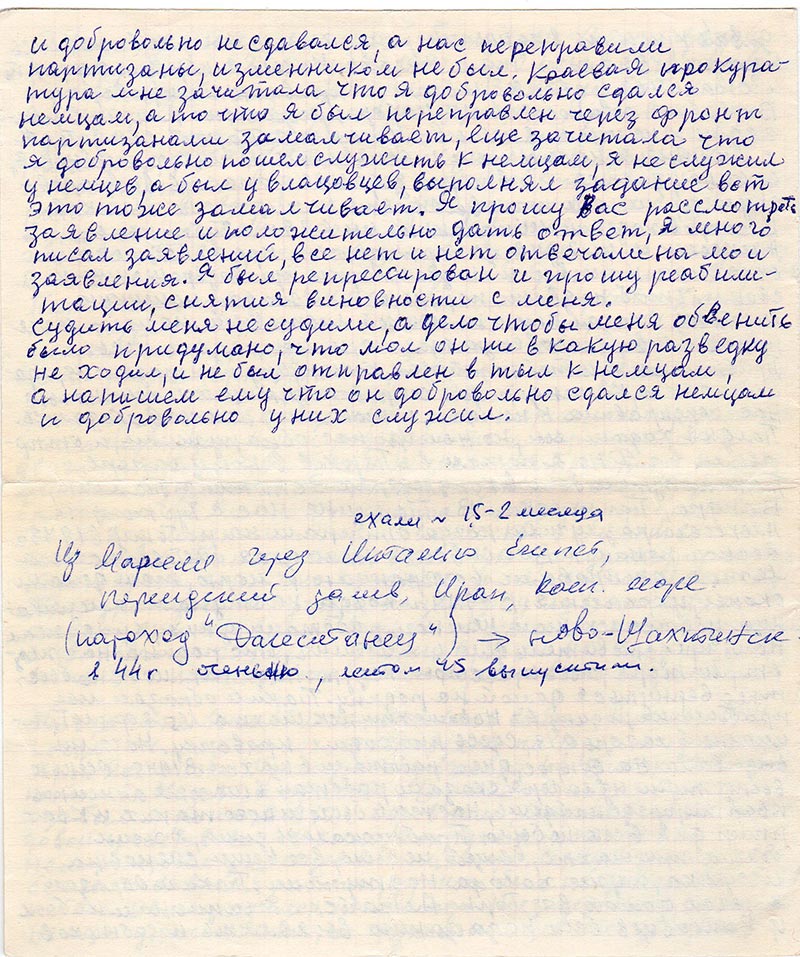 и добровольно несдавался, а нас переправили
партизаны, изменником небыл. Краевая прокура-
тура мне зачитала что я добровольно сдался
немцам, а то что я был переправлен через фронт
партизанами замалчивает, еще зачитала что
я добровольно пошел служить к немцам, я неслужил
у немцев, а был у влацовцев, выполнял задание вот
это тоже замалчивает. Я прошу Вас рассмотреть
заявление и положительно дать ответ, я много
писал заявлений, все нет и нет отвечали на мои
заявления. Я был репрессирован и прошу реабили-
тации, снятия виновности с меня.
Судить меня несудили, а дело чтобы меня обвенить
было придумано, что мол он ни в какую разведку
не ходил, и не был отправлен в тыл к немцам,
а напишем ему что он добровольно сдался немцам
и добровольно у них служил.
ехали ~ 1,5-2 месяца
Из Марселя через Италию Египет,
персидский залив, Иран, Касп. море
(пароход "Дагестанец") → ново-Шахтинск
в 44г осенью, летом 45 выпустили.